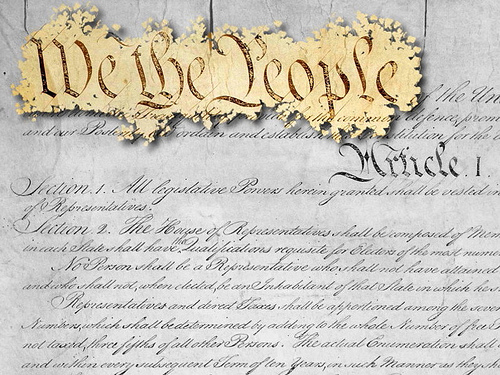 We the People
of the Un
defence, prom
and our Posterity
Article. I.
Section. 1. All legislative Powers herein granted shall be vested in
of Representatives.
Section. 2. The House of Representatives shall be composed of Mem
in each State shall have the Qualifications requisite for Electors of the most nume
No Person shall be a Representative who shall not have attained
and who shall not, when elected, be an Inhabitant of that State in which he s
Representatives and direct Taxes shall be apportioned among the seve
Numbers, which shall be determined by adding to the whole Number of free
not taxed, three fifths of all other Persons. The actual Enumeration shall
and within every subsequent Term of ten Years, in such Manner as they sh